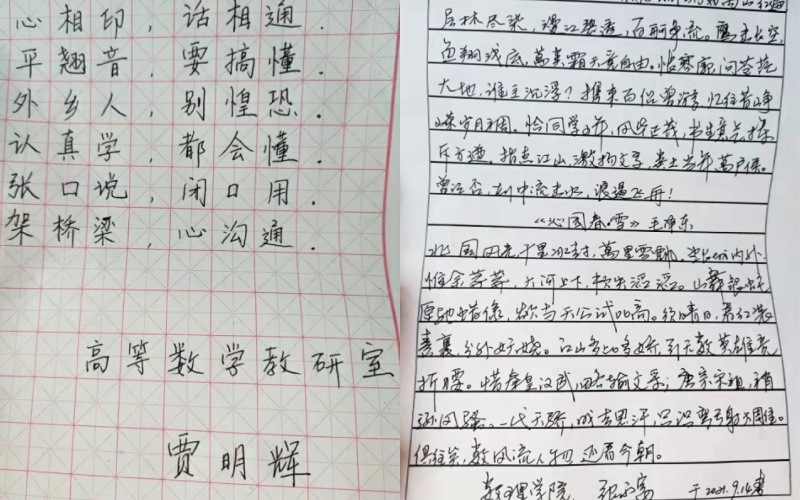 心相印，话相通．
平翘音，要搞懂．
外乡人，别惶恐．
认真学，都会懂．
张口说，闭口用．
架桥梁，心沟通．
高等数学教研室
贾明辉
层林尽染，漫江碧透，百舸争流。鹰击长空，
鱼翔浅底，萬类霜天竞自由。怅寥廓，问苍茫
大地，谁主沉浮？携来百侣曾游，忆往昔峥
嵘岁月稠。恰同学少年，风华正茂，书生意气，挥
斥方遒。指点江山，激扬文字，粪土当年萬户侯。
曾记否，到中流击水，浪遏飞舟！
《沁园春·雪》毛泽东
北国风光，千里冰封，萬里雪飘，望长城内外，
惟余莽莽，大河上下，顿失滔滔。山舞银蛇，
原驰蜡像，欲与天公试比高。须晴日，看红装
素裹，分外妖娆。江山如此多娇，引无数英雄竞
折腰。惜秦皇汉武，略输文采；唐宗宋祖，稍
逊风骚。一代天骄，成吉思汗，只识弯弓射大雕。
俱往矣，数风流人物，还看今朝。
数理学院 于2021.9.16书